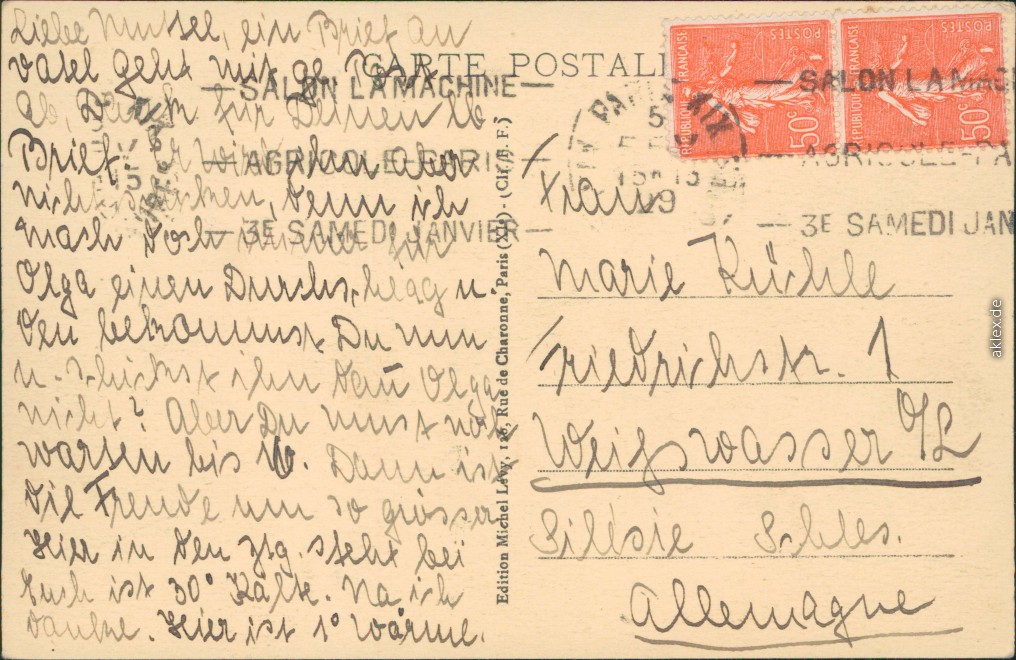 Liebe Muttel, ein Brief an
Vatel geht mit ge Post
ab, für Deinen 16
Brief. er wird ihm aber
nicht denn ich
mach doch immer für
Olga einen Durchschlag u.
den bekommst Du nun
u. schickst ihn dann Olga
nicht? Aber Du musst noch
warten bis 16. Dann ist
die Freude um so grösser
Hier in den Ztg. steht bei
Euch ist 30° Kälte. Na ich
danke. Hier ist 1° Wärme.
CARTE POSTALE
SALON LA MACHINE
AGRICOLE-PARIS
3E SAMEDI JANVIER
Edition Michel Lévy, 126, Rue de Charonne, Paris (XIe) - (Cl. E. F.)
RÉPUBLIQUE FRANÇAISE
POSTES
50c
RÉPUBLIQUE FRANÇAISE
POSTES
50c
PARIS XIX
5
15H15
29
SALON LA MACH
AGRICOLE-PA
3E SAMEDI JAN
Frau
Marie Küchle
Friedrichstr. 1
Weißwasser O/L
Silésie Schles.
Allemagne
aklex.de